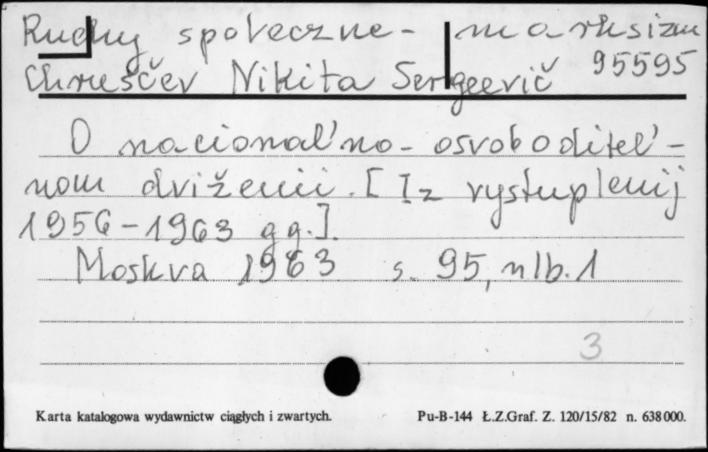 Ruchy społeczne - marksizm
Chruščev Nikita Sergeevič 95595
O nacional'no-osvoboditel'-
nom dviženii. [Iz vystuplenij
1956-1963 gg.].
Moskva 1963 s. 95, nlb. 1
3
Karta katalogowa wydawnictw ciągłych i zwartych. Pu-B-144 Ł.Z.Graf. Z. 120/15/82 n. 638000.